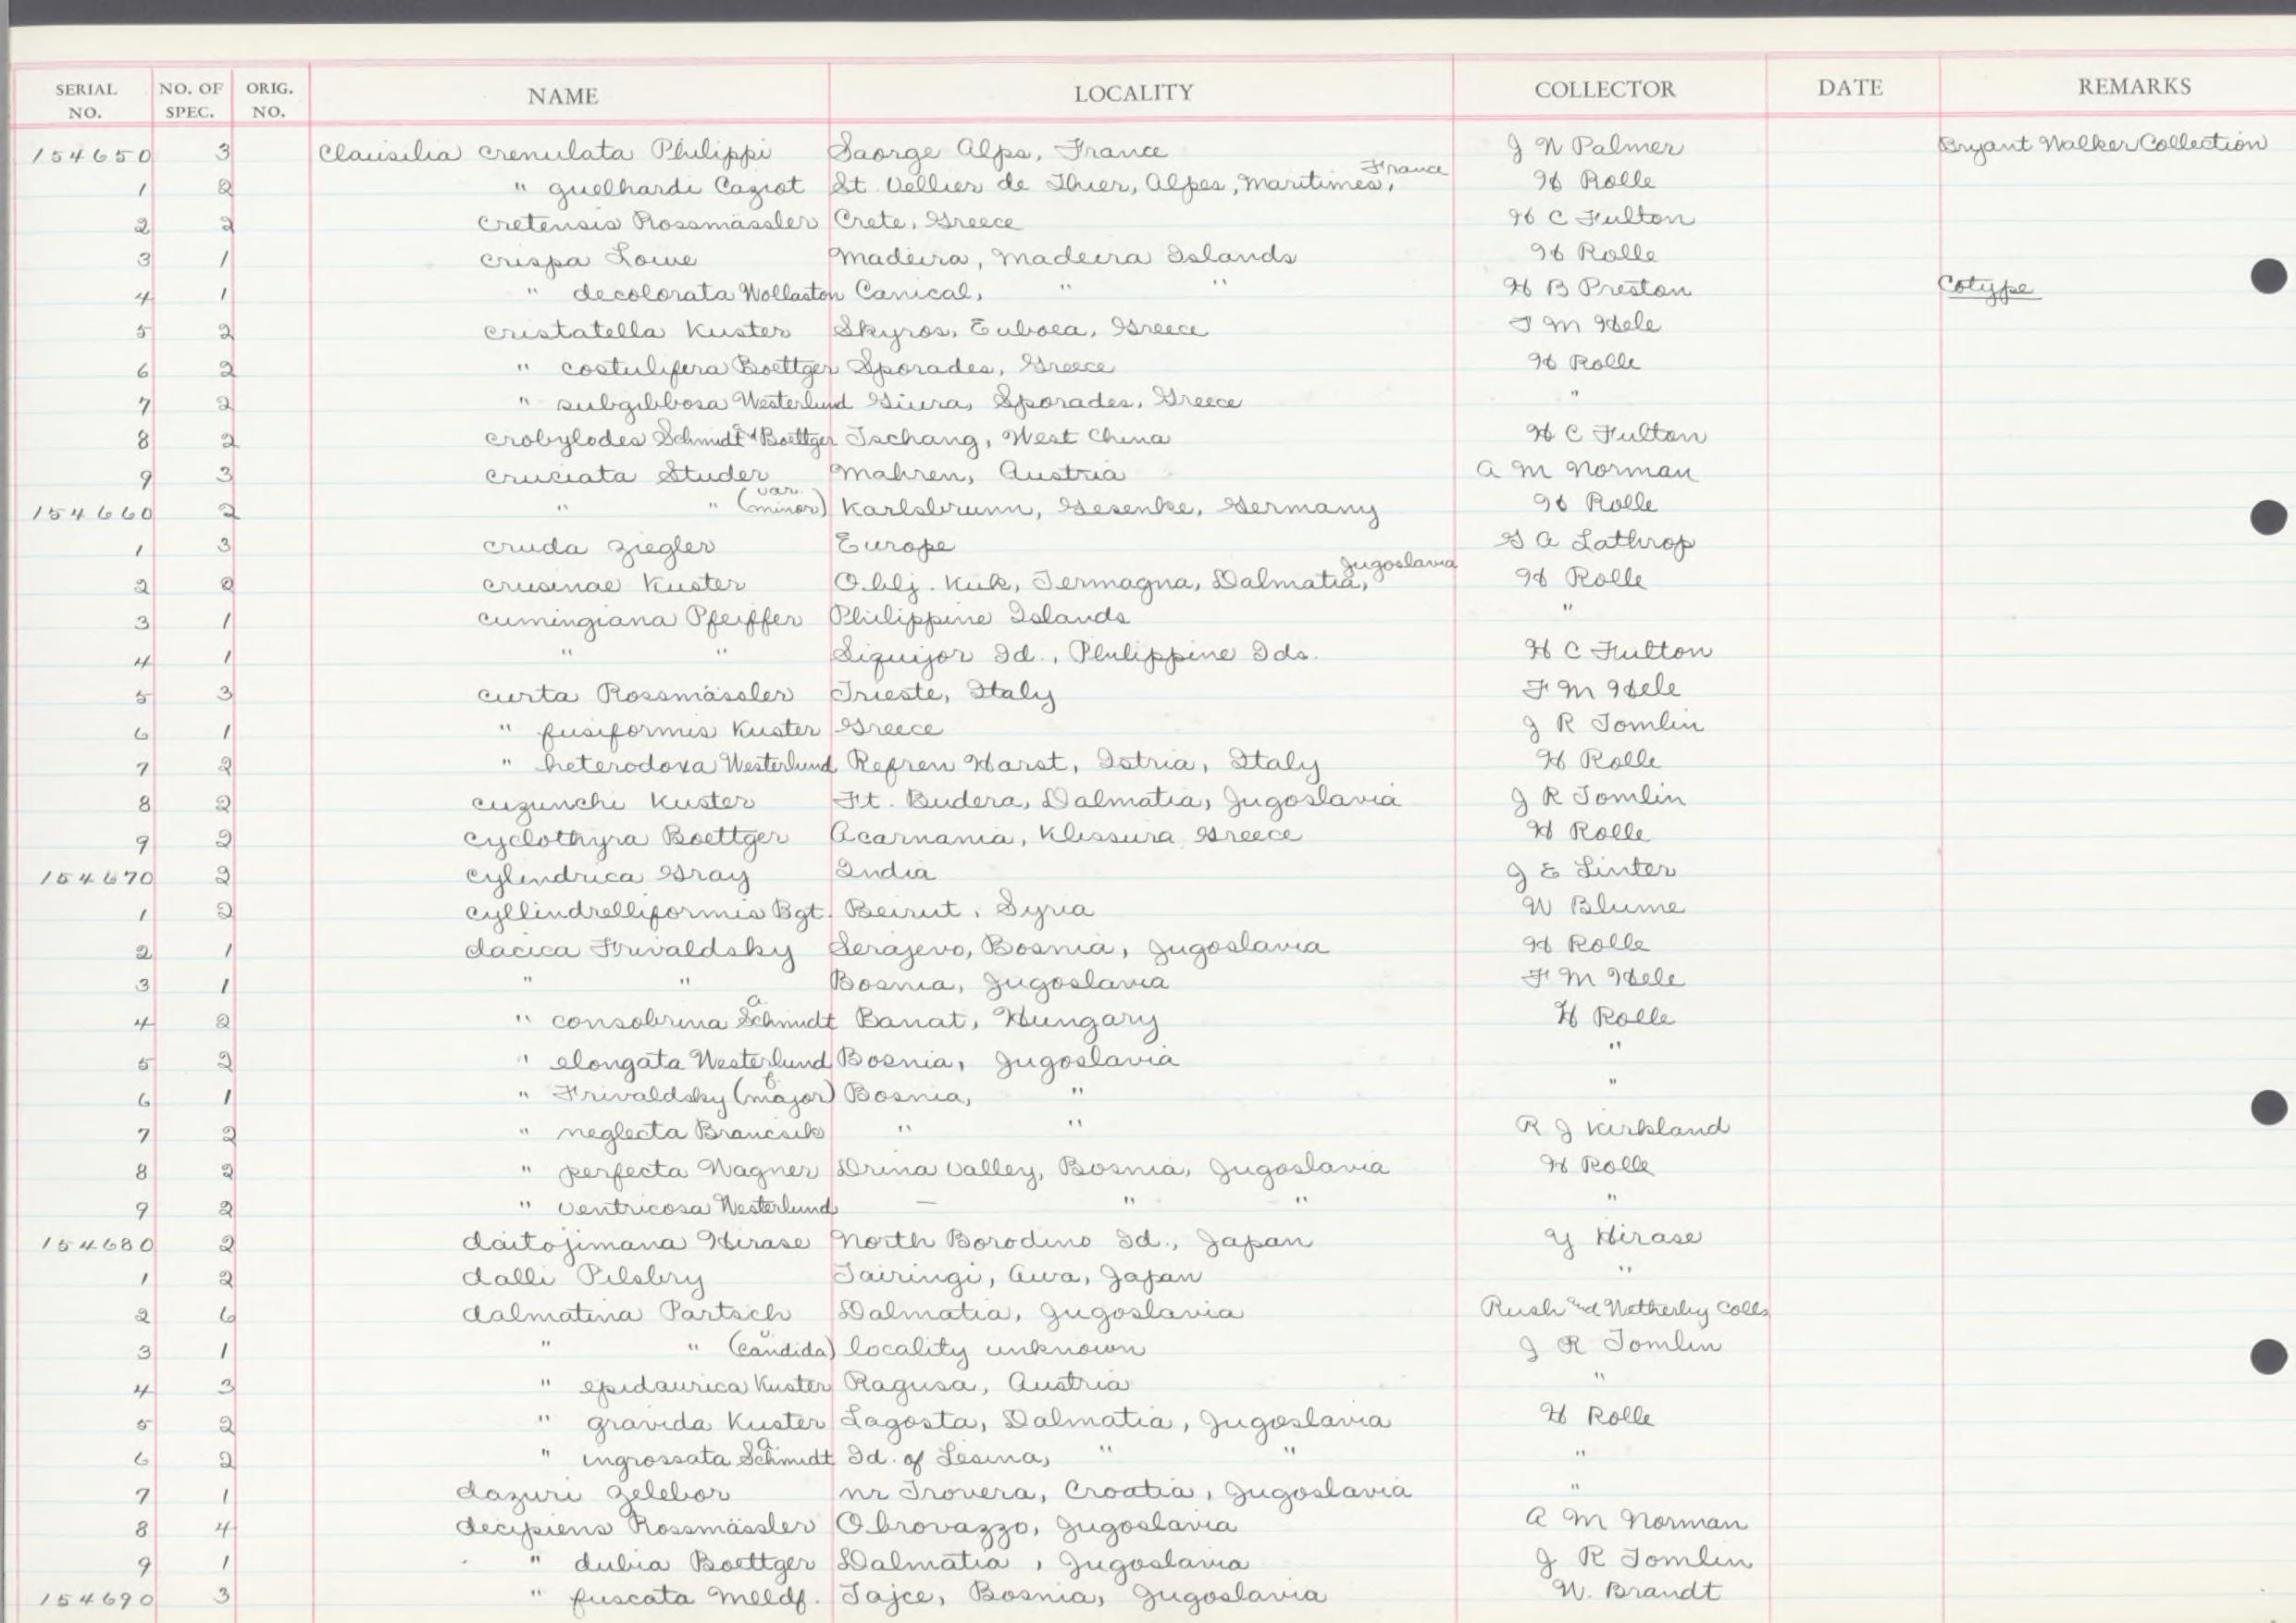 SERIAL NO. NO. OF SPEC. ORIG. NO. NAME LOCALITY COLLECTOR DATE REMARKS
154650 3 Clausilia crenulata Philippi Saorge Alps, France J W Palmer Bryant Walker Collection
1 2 " guelhardi Caziot St. Vellier de Thier, Alpes, Maritimes, France H Rolle
2 2 cretensis Rossmässler Crete, Greece H C Fulton
3 1 crispa Lowe Madeira, Madeira Islands H Rolle
4 1 " decolorata Wollaston Canical, " " H B Preston Cotype
5 2 cristatella Kuster Skyros, Euboea, Greece F M Hele
6 2 " costulifera Boettger Sporades, Greece H Rolle
7 2 " subgibbosa Westerlund Giura, Sporades, Greece "
8 2 crobylodes Schmidt and Boettger Ischang, West China H C Fulton
9 3 cruciata Studer Mahren, Austria A M Norman
154660 2 " " (var. minor) Karlsbrunn, Gesenke, Germany H Rolle
1 3 cruda Ziegler Europe G A Lathrop
2 2 crusinae Kuster O.blj. Kuk, Termagna, Dalmatia, Jugoslavia H Rolle
3 1 cumingiana Pfeiffer Philippine Islands "
4 1 " " Siquijor Id., Philippine Ids. H C Fulton
5 3 curta Rossmässler Trieste, Italy F M Hele
6 1 " fusiformis Kuster Greece J R Tomlin
7 2 " heterodoxa Westerlund Refren Harst, Istria, Italy H Rolle
8 2 cuzunchi Kuster Ft. Budera, Dalmatia, Jugoslavia J R Tomlin
9 2 cyclothyra Boettger Acarnania, Klissura, Greece H Rolle
154670 2 cylindrica Gray India J E Linter
1 2 cyllindrelliformis Bgt. Beirut, Syria W Blume
2 1 dacica Frivaldsky Serajevo, Bosnia, Jugoslavia H Rolle
3 1 " " Bosnia, Jugoslavia F M Hele
4 2 " consobrina A Schmidt Banat, Hungary H Rolle
5 2 " elongata Westerlund Bosnia, Jugoslavia "
6 1 " Frivaldsky (major) Bosnia, " "
7 2 " neglecta Brancsik " " R J Kirkland
8 2 " perfecta Wagner Drina Valley, Bosnia, Jugoslavia H Rolle
9 2 " ventricosa Westerlund — " " "
154680 2 daitojimana Hirase North Borodino Id., Japan Y Hirase
1 2 dalli Pilsbry Tairingi, Awa, Japan "
2 6 dalmatina Partsch Dalmatia, Jugoslavia Rush and Wetherby Colls
3 1 " " (candida) locality unknown J R Tomlin
4 3 " epidaurica Kuster Ragusa, Austria "
5 2 " gravida Kuster Lagosta, Dalmatia, Jugoslavia H Rolle
6 2 " ingrossata A Schmidt Id. of Lesina, " " "
7 1 dazuri Zelebor nr Trovera, Croatia, Jugoslavia "
8 4 decipiens Rossmässler Obrovazzo, Jugoslavia A M Norman
9 1 " dubia Boettger Dalmatia, Jugoslavia J R Tomlin
154690 3 " fuscata Mlldf. Jajce, Bosnia, Jugoslavia W. Brandt